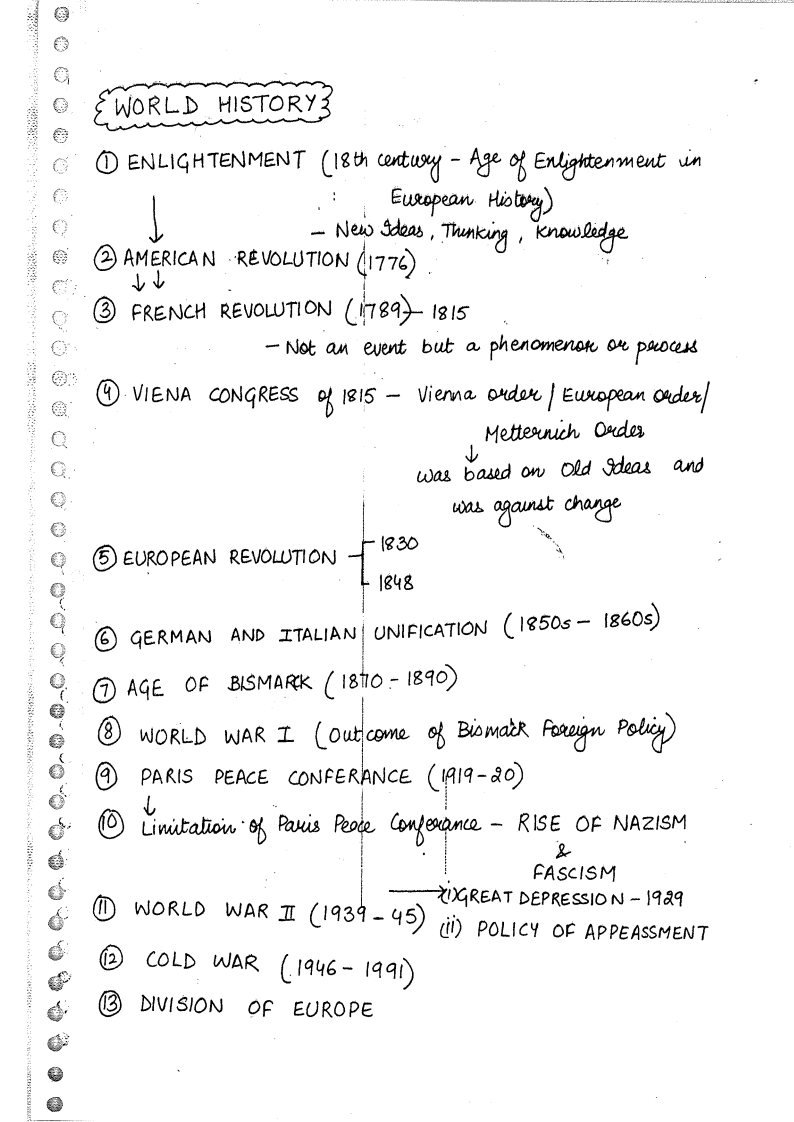 WORLD HISTORY
① ENLIGHTENMENT (18th century - Age of Enlightenment in
European History)
- New Ideas, Thinking, Knowledge
② AMERICAN REVOLUTION (1776)
③ FRENCH REVOLUTION (1789) - 1815
- Not an event but a phenomenon or process
④ VIENA CONGRESS of 1815 - Vienna order / European order/
Metternich Order
↓
was based on Old Ideas and
was against change
⑤ EUROPEAN REVOLUTION - 1830
1848
⑥ GERMAN AND ITALIAN UNIFICATION (1850s - 1860s)
⑦ AGE OF BISMARCK (1870 - 1890)
⑧ WORLD WAR I (Outcome of Bismark Foreign Policy)
⑨ PARIS PEACE CONFERANCE (1919-20)
↓
⑩ Limitation of Paris Peace Conferance - RISE OF NAZISM
&
FASCISM
→ (i) GREAT DEPRESSION - 1929
⑪ WORLD WAR II (1939 - 45) (ii) POLICY OF APPEASSMENT
⑫ COLD WAR (1946 - 1991)
⑬ DIVISION OF EUROPE